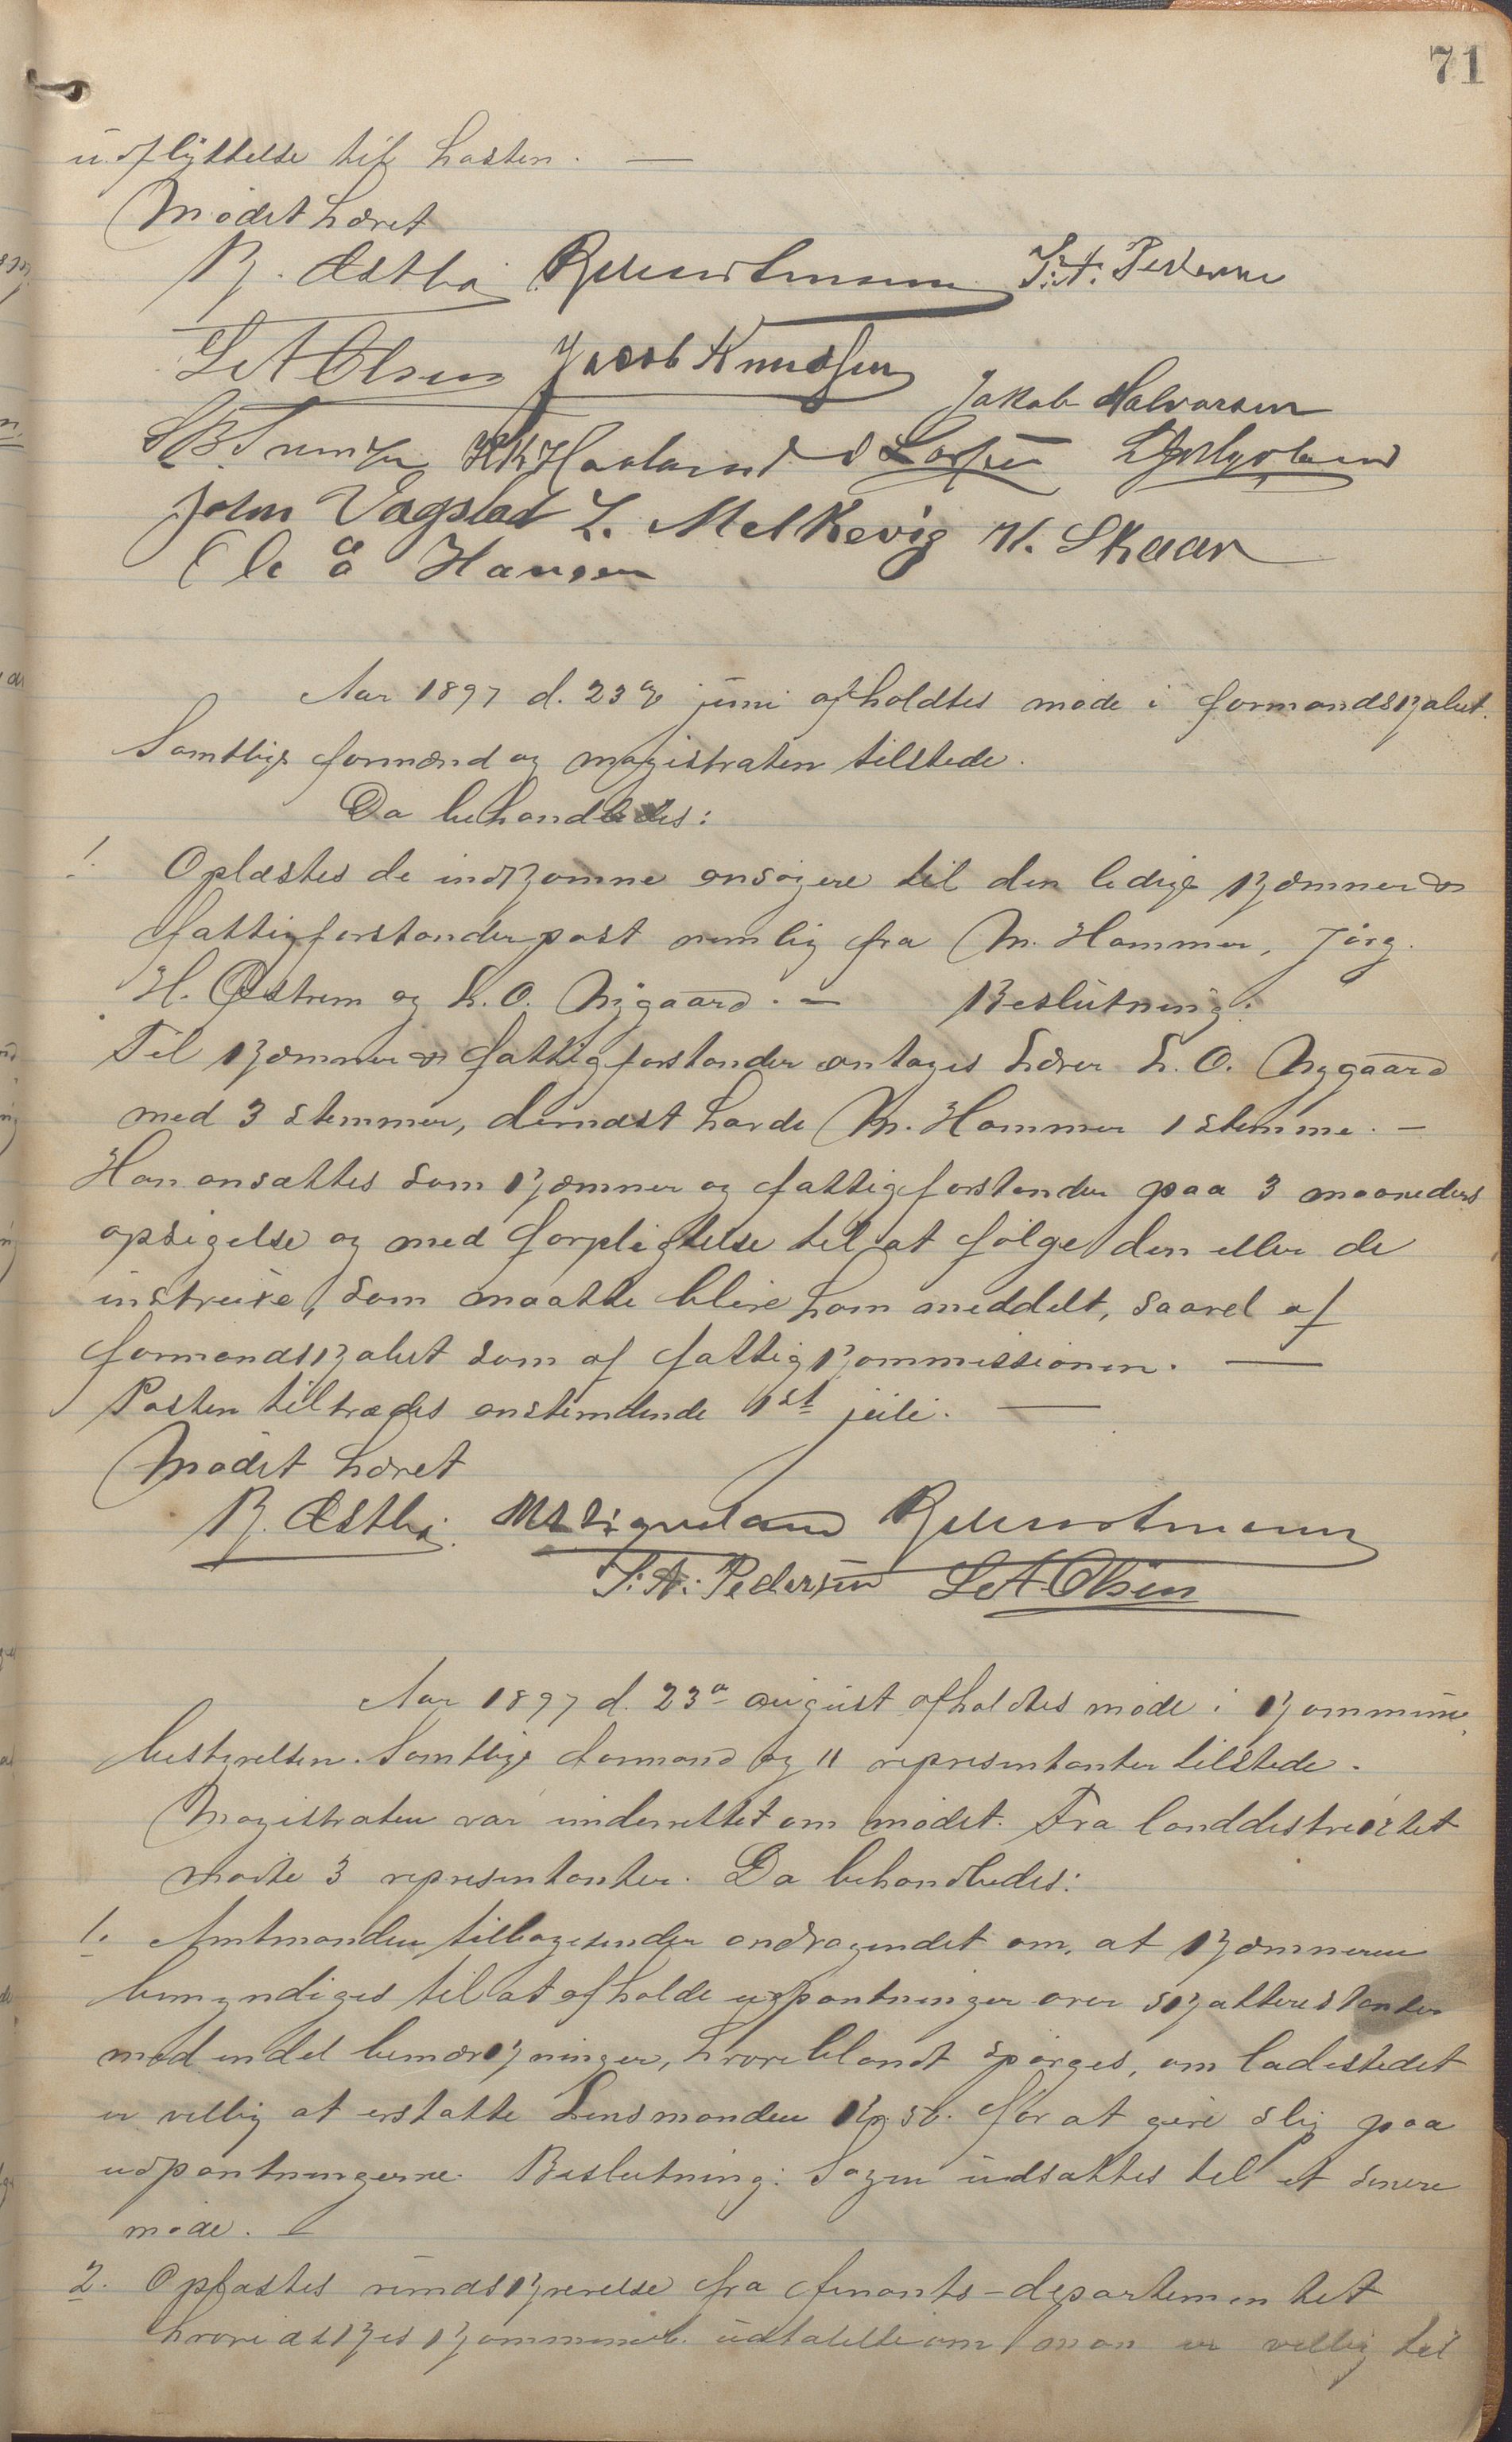 71
udflyttelse til høsten. —
Mødet hævet
B. Østbø T. A. Pedersen
L A Olsen Jacob Knudsen
Jakob Halvorsen
Haaland
John Vagstad L. Melkevig N. Skaar
Ole Å Hansen
Aar 1897 d. 23de juni afholdtes møde i formandskabet.
Samtlige formænd og magistraten tilstede.
Da behandledes:
1. Oplæstes de indkomne ansøgere til den ledige kæmner &
fattigforstanderpost nemlig fra M. Hammer, Jørg.
H. Østrem og L. O. Nygaard. — Beslutning:
Til kæmner & fattigforstander antages Lærer L. O. Nygaard
med 3 stemmer, dernæst havde M. Hammer 1 stemme. —
Han ansættes som kæmner og fattigforstander paa 3 maaneders
opsigelse og med forpligtelse til at følge den eller de
instruxe, som maatte blive ham meddelt, saavel af
formandskabet som af fattigkommissionen. —
Posten tiltrædes anstundende 1st juli. —
Mødet hævet
B. Østbø
T. A. Pedersen L A Olsen
Aar 1897 d. 23de august afholdtes møde i kommune-
bestyrelsen. Samtlige formænd og 11 representanter tilstede.
Magistraten var underrettet om mødet. Fra landdistriktet
mødte 3 representanter. Da behandledes:
1. Amtmanden tilbagesender andragendet om, at kæmneren
bemyndiges til at afholde udpantninger over skatterestanter
med endel bemærkninger, hvoriblandt spørges, om ladestedet
er villig at erstatte Lensmanden for at give slip paa
udpantningerne. Beslutning: Sagen udsattes til et senere
møde. —
2. Oplæstes rundskrivelse fra finants-departementet
hvori æskes kommuneb. udtalelse om man er villig til